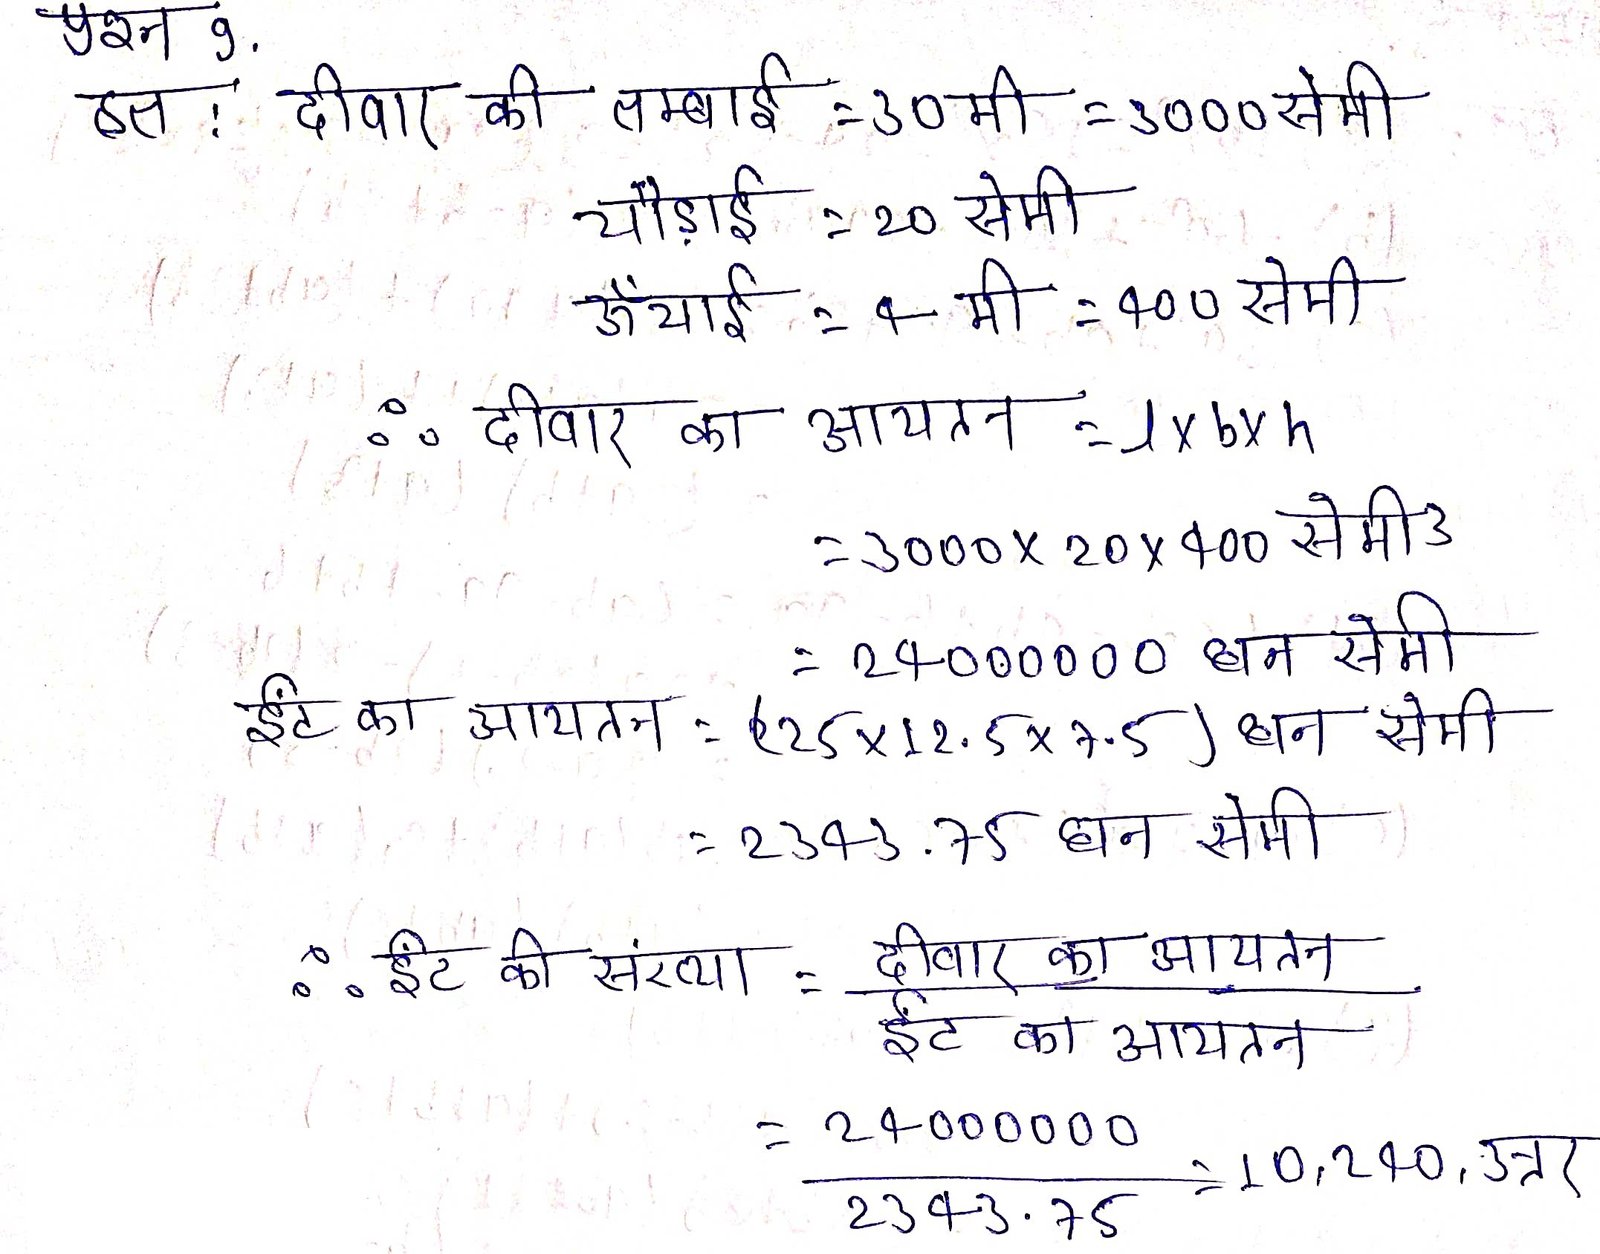 प्रश्न 9.
हल : दीवार की लम्बाई = 30 मी = 3000 सेमी
चौड़ाई = 20 सेमी
ऊँचाई = 4 मी = 400 सेमी
∴ दीवार का आयतन = l × b × h
= 3000 × 20 × 400 सेमी3
= 24000000 घन सेमी
ईंट का आयतन = (25 × 12.5 × 7.5) घन सेमी
= 2343.75 घन सेमी
∴ ईंट की संख्या = दीवार का आयतन
ईंट का आयतन
= 24000000
2343.75 = 10,240. उत्तर